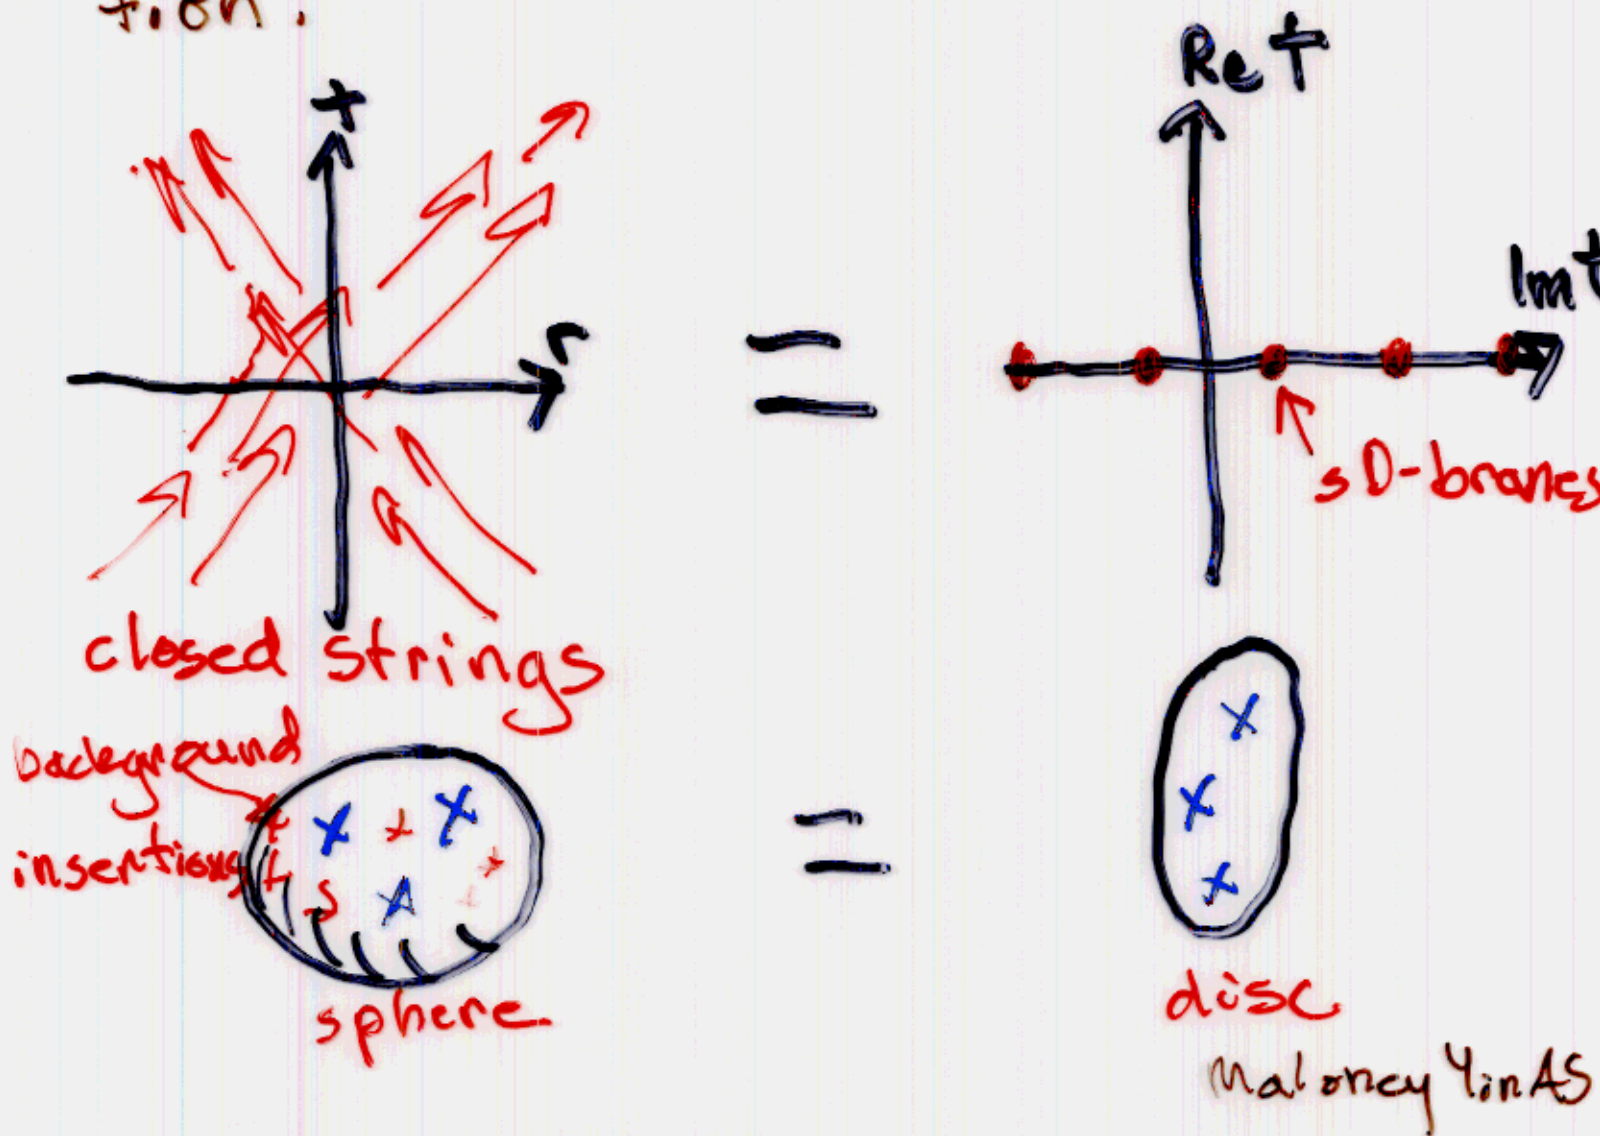 tion.
t
Re t
r
=
Im t
sD-branes
closed strings
background
insertions
=
sphere
disc
Maloney Yin AS